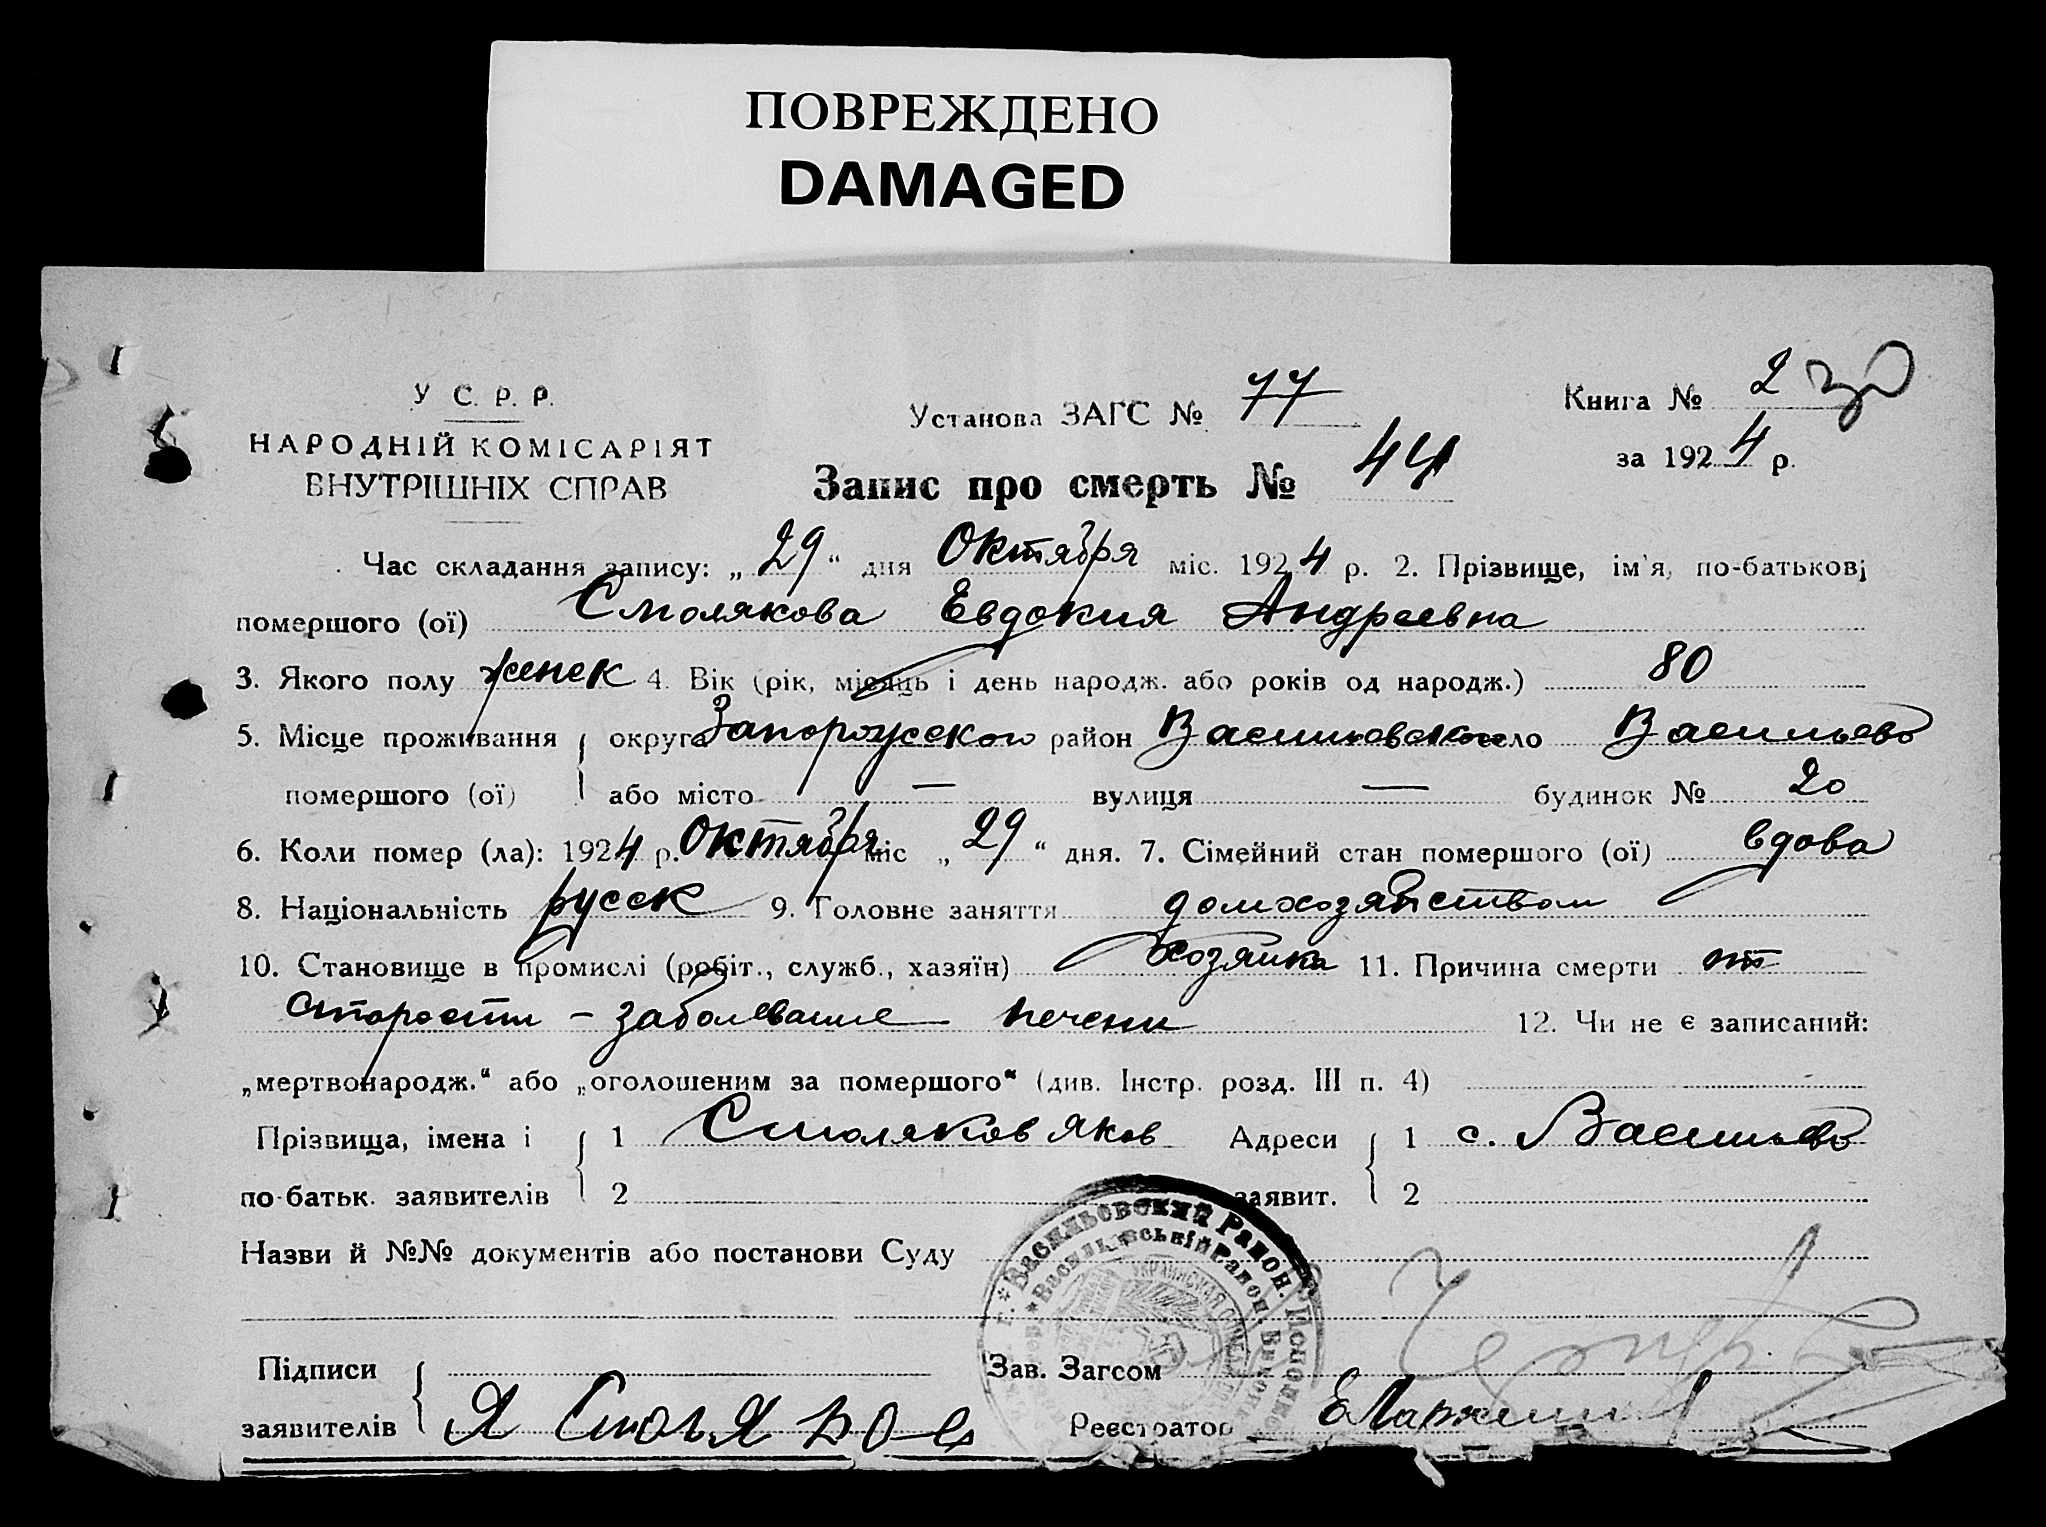 ПОВРЕЖДЕНО
DAMAGED
У С. Р. Р.
НАРОДНІЙ КОМІСАРІЯТ
ВНУТРІШНІХ СПРАВ
Установа ЗАГС № 77
Книга № 2
за 1924 р.
Запис про смерть № 44
Час складання запису: „29“ дня Октября міс. 1924 р. 2. Прізвище, ім'я, по-батькові
помершого (ої) Смолякова Евдокия Андреевна
3. Якого полу женск 4. Вік (рік, місяць і день народж. або років од народж.) 80
5. Місце проживання округа Запорожского район Васильевского село Васильево
помершого (ої) або місто — вулиця — будинок № 20
6. Коли помер (ла): 1924 р. Октября міс „29“ дня. 7. Сімейний стан помершого (ої) вдова
8. Національність русск 9. Головне заняття домохозяйством
10. Становище в промислі (робіт., служб., хазяїн) хозяйка 11. Причина смерти от
старости – заболевание печени 12. Чи не є записаний:
„мертвонародж.“ або „оголошеним за помершого“ (див. Інстр. розд. III п. 4)
Прізвища, імена і 1 Смоляков Яков Адреси 1 с. Васильево
по-батьк. заявителів 2 заявит. 2
Назви й №№ документів або постанови Суду
Васильовский Район.
Васильевській Район.
Підписи Зав. Загсом
заявителів Я Смоляков Реєстратор